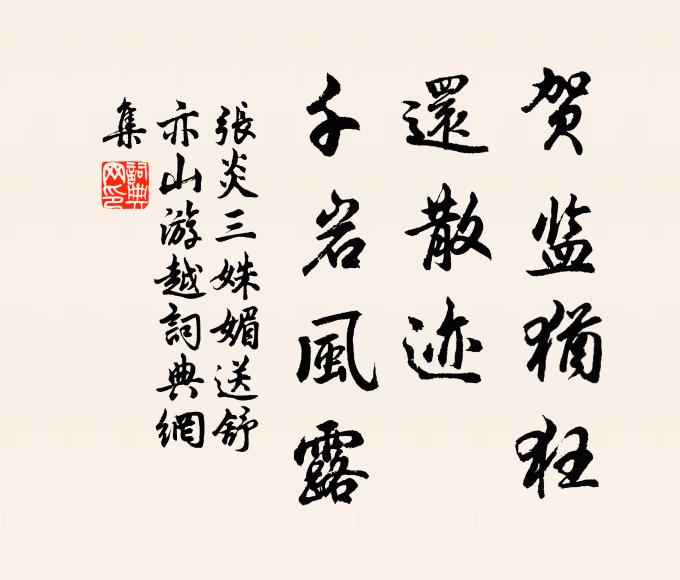 贺监犹狂
還散迹
千岩風露
張炎三姝媚送舒
亦山游越詞典網
集
詞典网印